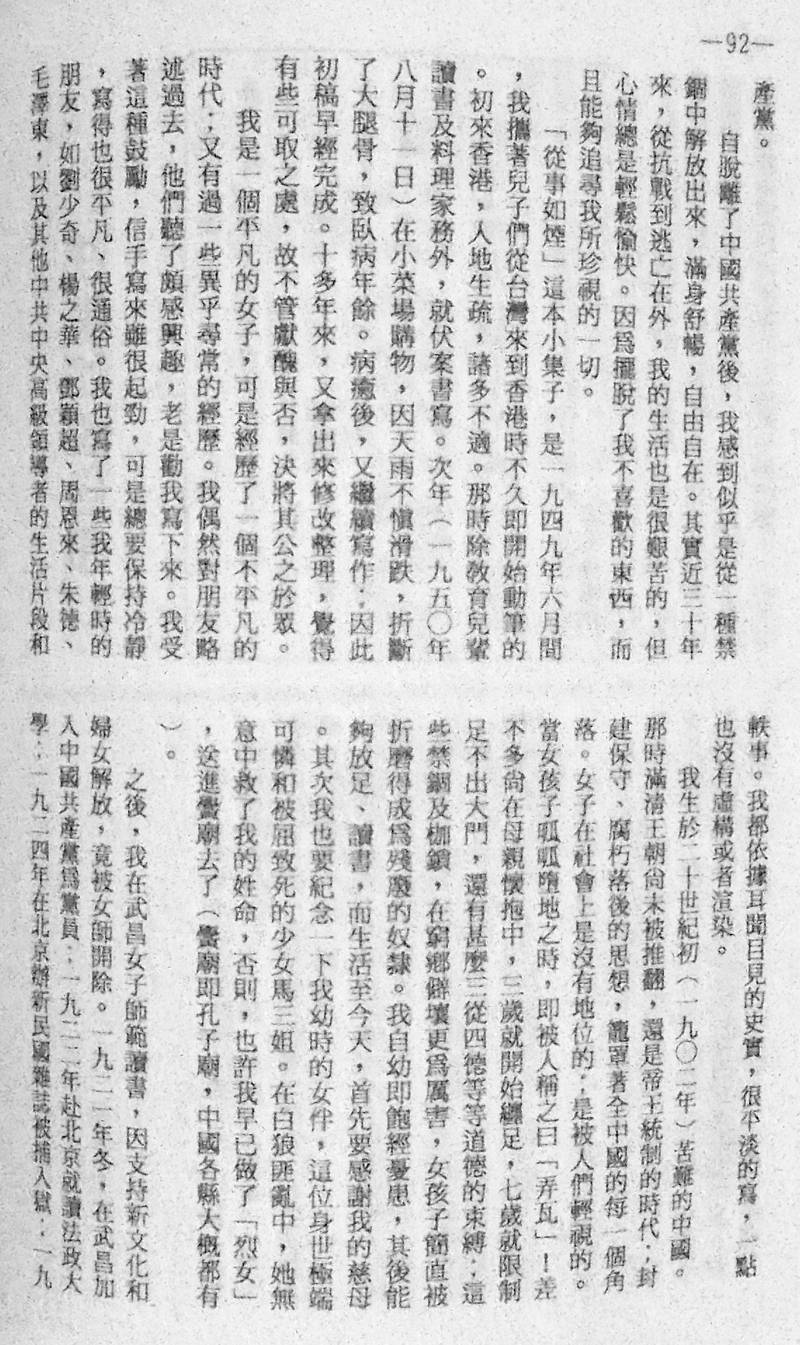 —92—
產黨。
自脫離了中國共產黨後，我感到似乎是從一種禁
錮中解放出來，滿身舒暢，自由自在。其實近三十年
來，從抗戰到逃亡在外，我的生活也是很艱苦的，但
心情總是輕鬆愉快。因爲擺脫了我不喜歡的東西，而
且能夠追尋我所珍視的一切。
「從事如煙」這本小集子，是一九四九年六月間
，我攜著兒子們從台灣來到香港時不久即開始動筆的
。初來香港，人地生疏，諸多不適。那時除教育兒輩
讀書及料理家務外，就伏案書寫。次年（一九五〇年
八月十一日）在小菜場購物，因天雨不慎滑跌，折斷
了大腿骨，致臥病年餘。病癒後，又繼續寫作；因此
初稿早經完成。十多年來，又拿出來修改整理，覺得
有些可取之處，故不管獻醜與否，決將其公之於眾。
我是一個平凡的女子，可是經歷了一個不平凡的
時代；又有過一些異乎尋常的經歷。我偶然對朋友略
述過去，他們聽了頗感興趣，老是勸我寫下來。我受
著這種鼓勵，信手寫來雖很起勁，可是總要保持冷靜
，寫得也很平凡、很通俗。我也寫了一些我年輕時的
朋友，如劉少奇、楊之華、鄧穎超、周恩來、朱德、
毛澤東，以及其他中共中央高級領導者的生活片段和
軼事。我都依據耳聞目見的史實，很平淡的寫，一點
也沒有虛構或者渲染。
我生於二十世紀初（一九〇二年）苦難的中國。
那時滿清王朝尚未被推翻，還是帝王統制的時代；封
建保守、腐朽落後的思想，籠罩著全中國的每一個角
落。女子在社會上是沒有地位的；是被人們輕視的。
當女孩子呱呱墮地之時，即被人稱之曰「弄瓦」！差
不多尚在母親懷抱中，三歲就開始纏足，七歲就限制
足不出大門，還有甚麼三從四德等等道德的束縛；這
些禁錮及枷鎖，在窮鄉僻壤更爲厲害，女孩子簡直被
折磨得成爲殘廢的奴隸。我自幼即飽經憂患，其後能
夠放足、讀書，而生活至今天，首先要感謝我的慈母
。其次我也要紀念一下我幼時的女伴，這位身世極端
可憐和被屈致死的少女馬三姐。在白狼匪亂中，她無
意中救了我的姓命，否則，也許我早已做了「烈女」
，送進黌廟去了（黌廟即孔子廟，中國各縣大概都有
）。
之後，我在武昌女子師範讀書，因支持新文化和
婦女解放，竟被女師開除。一九二一年冬，在武昌加
入中國共產黨爲黨員；一九二二年赴北京就讀法政大
學；一九二四年在北京辦新民國雜誌被捕入獄；一九